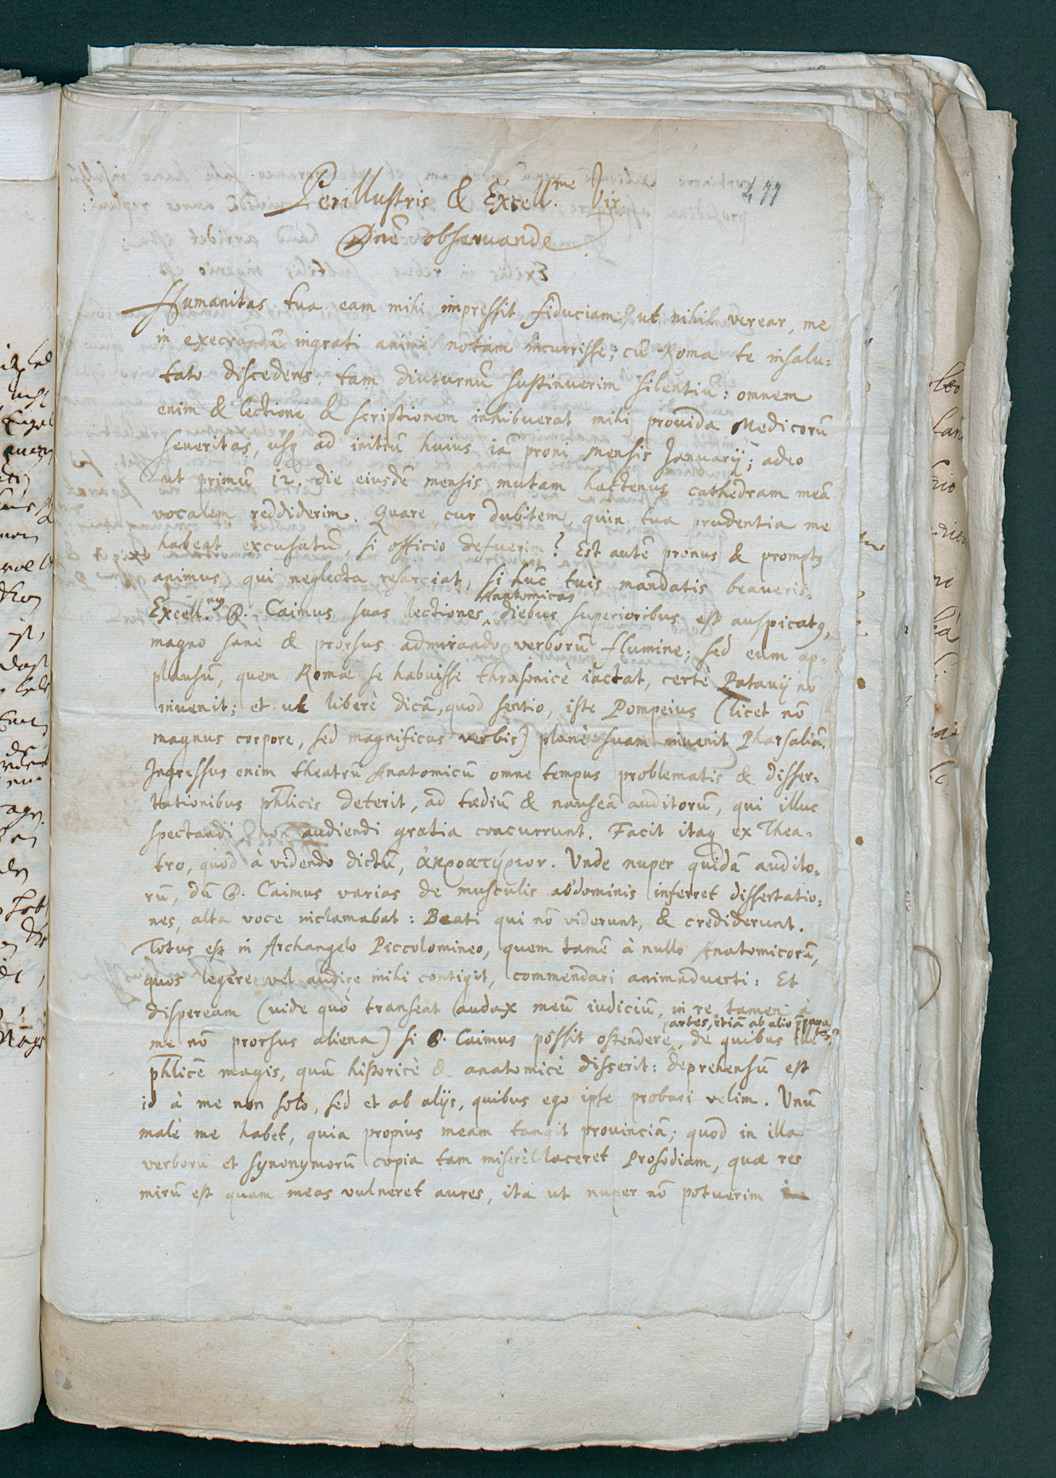 477
Perillustris & Excell.me Vir
Dñe observande
Humanitas tua eam mihi impressit fiduciam, ut nihil verear, me
in execrandũ ingrati animi notam incurrisse; cũ Roma te insalu-
tato discedens, tam diuturnũ sustinuerim silentiũ: omnem
enim & lectione & scriptionem inhibuerat mihi provida Medicorũ
severitas, usq ad initiũ huius iã proni mensis Januarij; adeo
ut primũ 12. die eiusdẽ mensis mutam hactenus cathedram meã
vocalem reddiderim. Quare cur dubitem, quin tua prudentia me
habeat excusatũ, si officio defuerim? Est autẽ pronus & promptq
animus, qui neglecta resarciat, si hũc tuis mandatis beaveris.
Excell.mq D. Caimus suas lectiones anatomicas diebus superioribus est auspicatq,
magno sanè & prorsus admirando verborũ flumine; sed eum ap-
plausũ, quem Romæ se habuisse thrasonicè iactat, certè Patavij nõ
invenit; et ut liberè dicã, quod sentio, iste Pompeius (licet nõ
magnus corpore, sed magnificus verbis) planè suam invenit Pharsaliã.
Ingressus enim theatrũ Anatomicũ omne tempus problematis & disser-
tationibus phlicis deterit, ad tædiũ & nauseã auditorũ, qui illuc
spectandi, non audiendi gratia concurrunt. Facit itaq ex Thea-
tro, quod à videndo dictũ, ἀκροατήριον. Unde nuper quidã audito-
rũ, dũ D. Caimus varias de musculis abdominis inferret dissertatio-
nes, alta voce inclamabat: Beati qui nõ viderunt, & crediderunt.
Totus est in Archangelo Piccolomineo, quem tamẽ à nullo Anatomicorũ,
quos legere vel audire mihi contigit, commendari animadverti: Et
dispeream (vide quò transeat audax meũ iudiciũ, in re tamen à
me nõ prorsus aliena) si D. Caimus possit ostendere partes, etiã ab alio p̃para
tas, de quibus ille
phlicẽ magis, quã historicè & anatomicè disserit: deprehensũ est
id à me non solo, sed et ab alijs, quibus ego ipse probari velim. Unũ
malè me habet, quia propius meam tangit provinciã; quod in illa
verborũ et synonymorũ copia tam miserè laceret Prosodiam, quæ res
mirũ est quam meas vulneret aures, ita ut nuper nõ potuerim